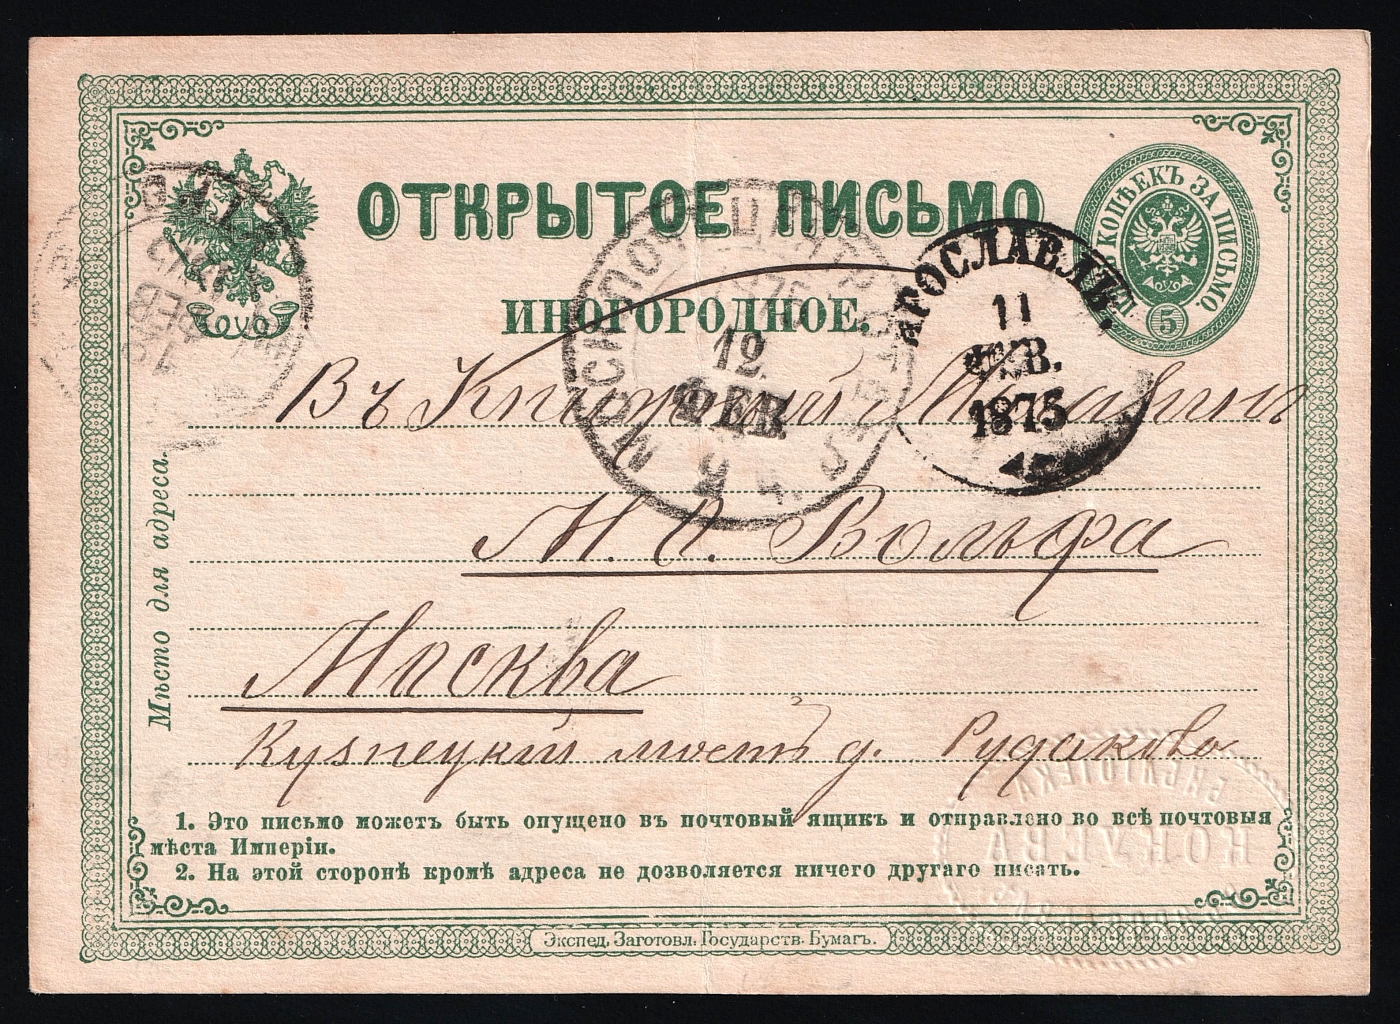 ОТКРЫТОЕ ПИСЬМО
5 КОПѢЕКЪ ЗА ПИСЬМО.
ИНОГОРОДНОЕ.
ЯРОСЛАВЛЬ.
11
ФЕВ.
1875
12
ФЕВ.
Въ Книжный Магазин
М. О. Вольфа
Москва
Кузнецкій мостъ д. Рудаково
Мѣсто для адреса.
1. Это письмо можетъ быть опущено въ почтовый ящикъ и отправлено во всѣ почтовыя
мѣста Имперіи.
2. На этой сторонѣ кромѣ адреса не дозволяется ничего другаго писать.
БИБЛІОТЕКА
КОКУЕВА
Экспед. Заготовл. Государств. Бумагъ.